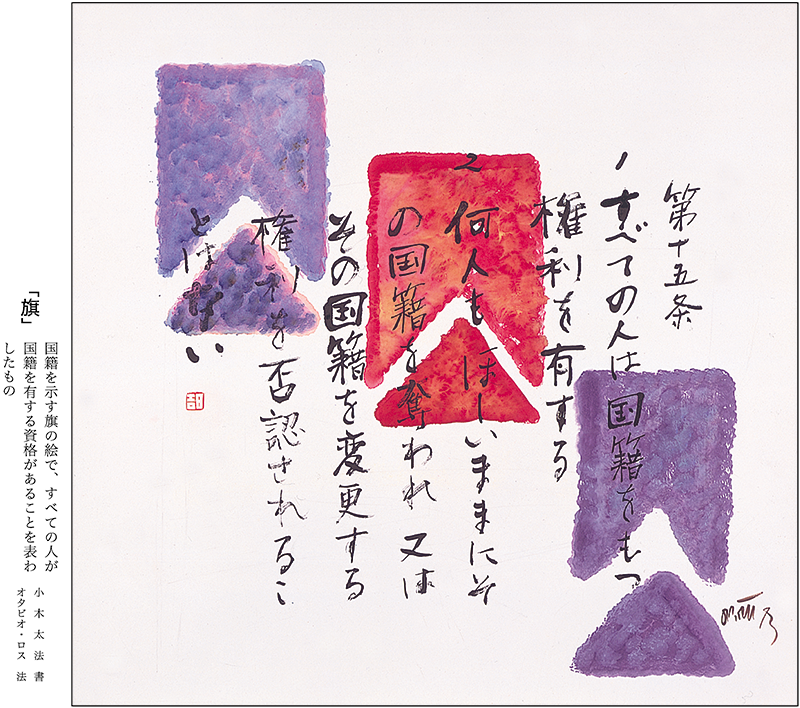 第十五条
1 すべての人は国籍をもつ
権利を有する
2 何人もほしいままにそ
の国籍を奪われ又は
その国籍を変更する
権利を否認されるこ
とはない
「旗」
国籍を示す旗の絵で、すべての人が
国籍を有する資格があることを表わ
したもの
小木太法書
オタビオ・ロス 法